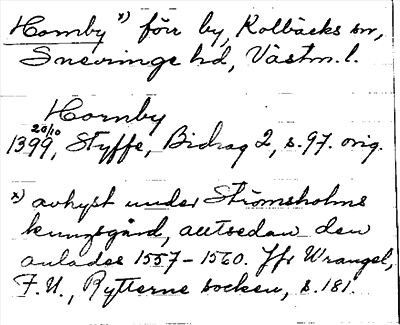 Hornby x) förr by, Kolbäcks sn,
Snevringe hd, Västm. l.
Hornby
1399 20/10, Styffe, Bidrag 2, s. 97. orig.
x) avhyst under Strömsholms
kungsgård, alltsedan den
anlades 1557-1560. Jfr Wrangel,
F. U., Rytterne socken, s. 181.